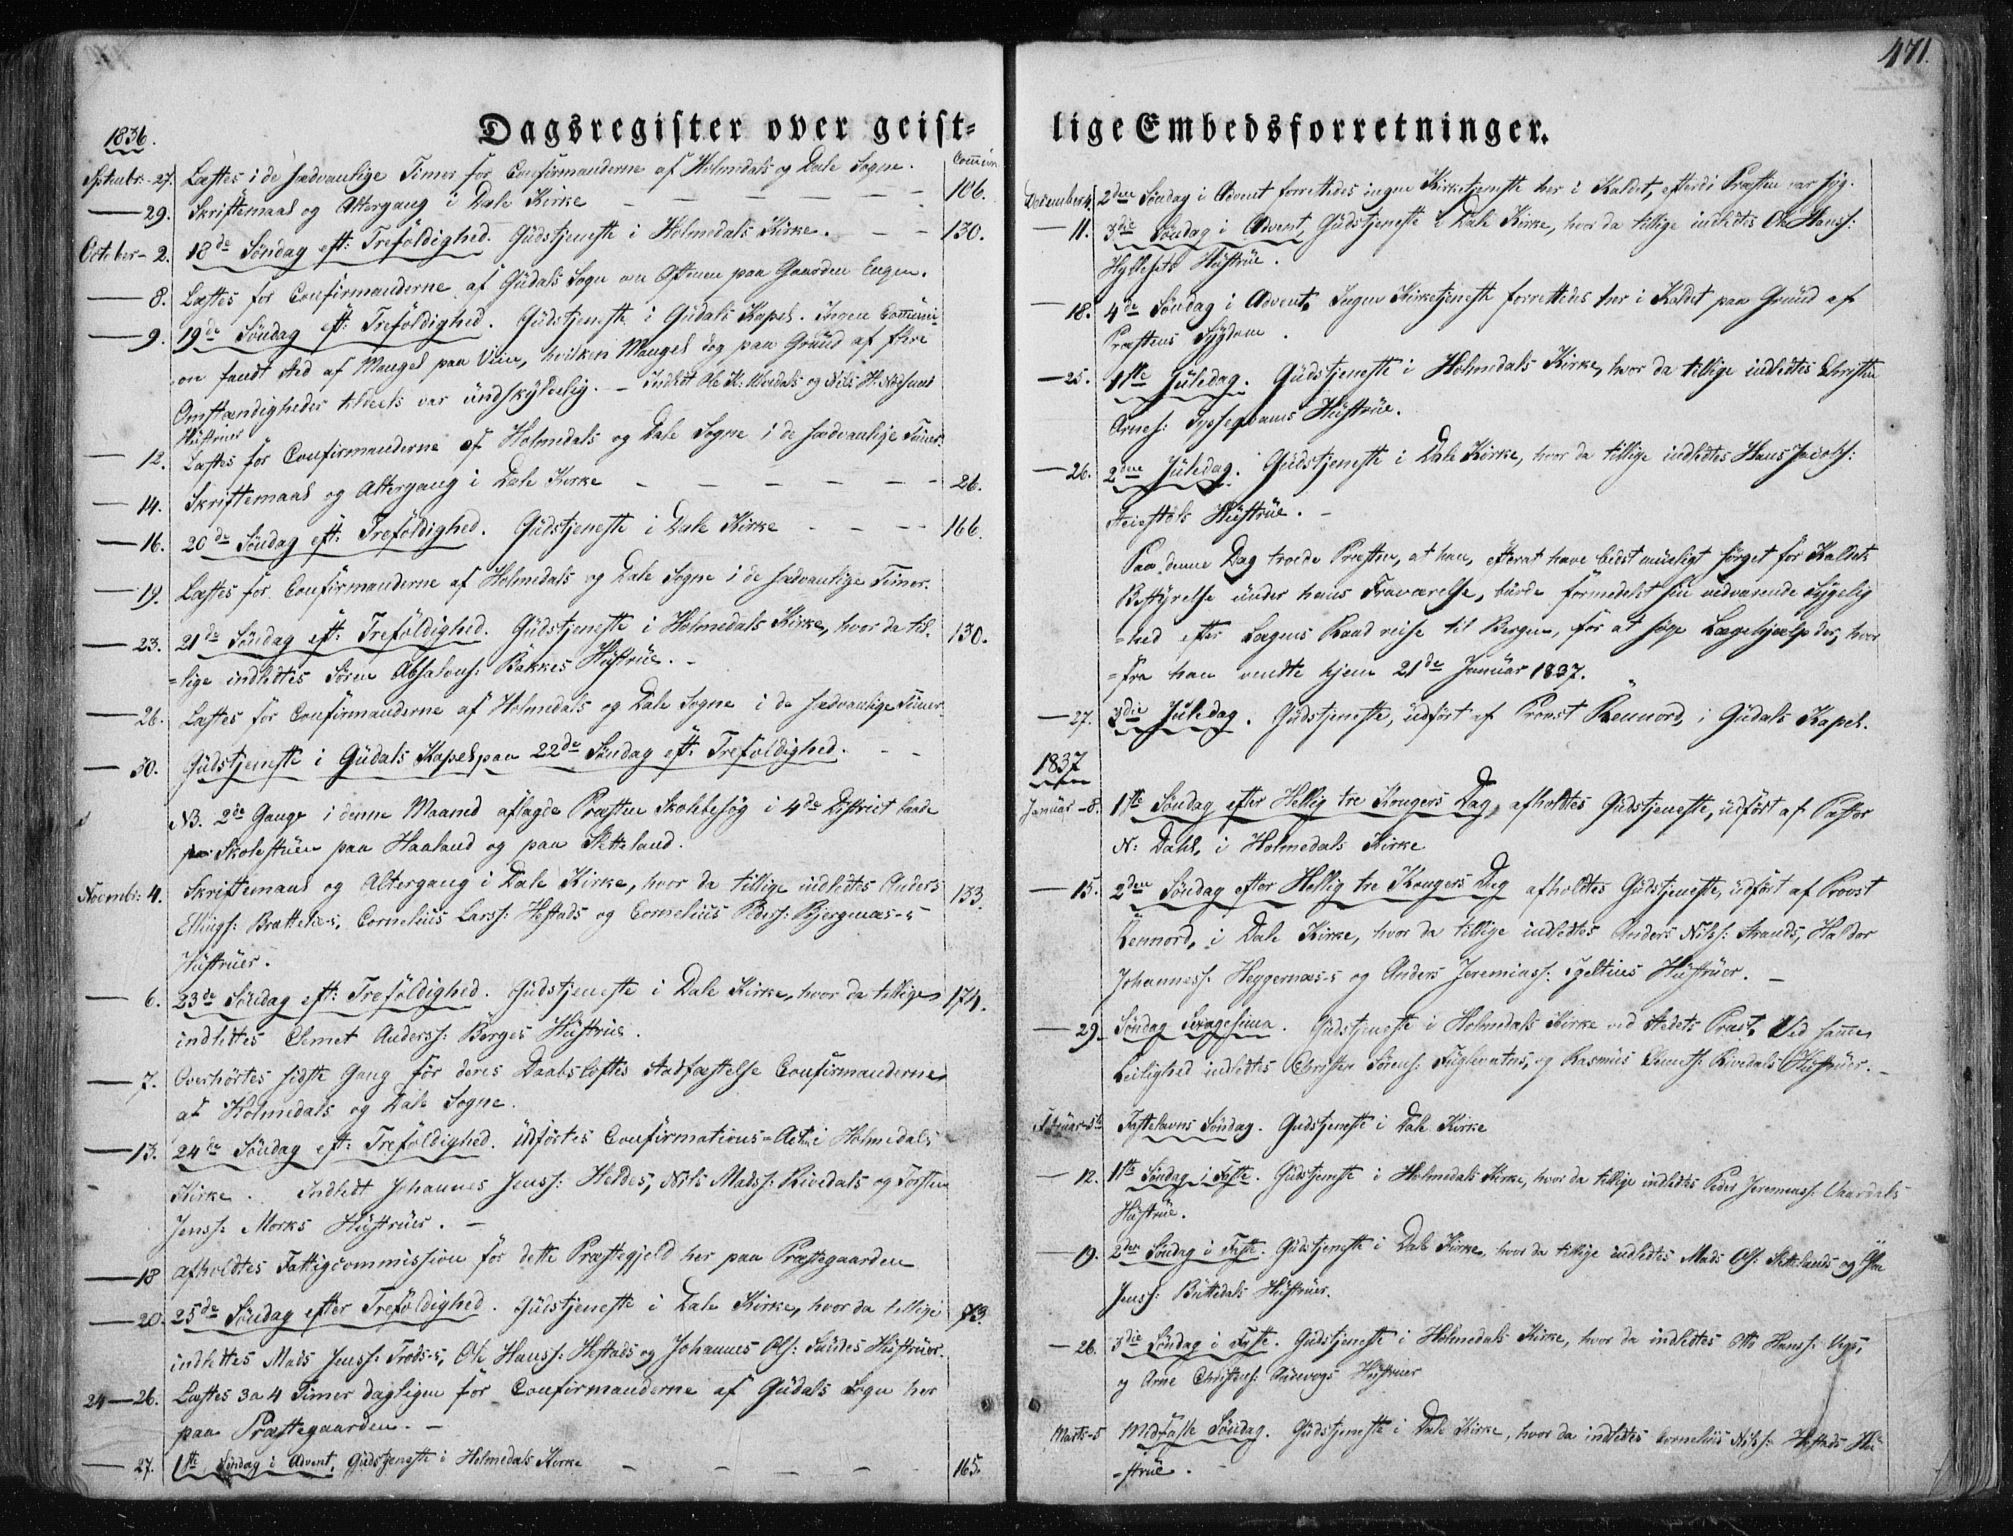 471.
Dagsregister over geist-
lige Embedsforretninger.
1836.
Commun
Septembr- 27. Læstes i de sædvanlige Timer for Confirmanderne af Holmedals og Dale Sogne.
— 29. Skriftemaal og Altergang i Dale Kirke — — — — — 106.
October- 2. 18de Søndag eft: Trefoldighed. Gudstjeneste i Holmedals Kirke. — — 130.
— 8. Læstes for Confirmanderne af Guddals Sogn om Aftenen paa Gaarden Engen.
— 9. 19de Søndag eft: Trefoldighed. Gudstjeneste i Guddals Kapel. Ingen Commüni-
on fandt sted af Mangel paa Viin, hvilken Mangel dog paa Grund af flere
Omstændigheder tildeels var undskyldelig. — Indledt Ole K. og Nils H.
Hustruer
— 12. Læstes for Confirmanderne af Holmedals og Dale Sogne i de sædvanlige Timer.
— 14. Skriftemaal og Altergang i Dale Kirke — — — — — — 26.
— 16. 20de Søndag eft: Trefoldighed. Gudstjeneste i Dale Kirke — — — 166.
— 19. Læstes for Confirmanderne af Holmedals og Dale Sogne i de sædvanlige Timer.
— 23. 21de Søndag eft: Trefoldighed. Gudstjeneste i Holmedals Kirke, hvor da til- 130.
=lige indledtes Søren Absalons: Bakkes Hustrüe. —
— 26. Læstes for Confirmanderne af Holmedals og Dale Sogne i de sædvanlige Timer.
— 30. Gudstjeneste i Guddals Kapel paa 22de Søndag eft: Trefoldighed. — —
NB. 2de Gange i denne Maaned aflagde Præsten Skolebesøg i 4de District baade
Skolestüen paa Haaland og paa Sletteland.
Novembr: 4. Skriftemaal og Altergang i Dale Kirke, hvor da tillige indledtes Anders 133.
Ellings: Brattelie-s, Cornelius Larss: Hestads og Cornelius Peders: Bjergenæs-s
Hustruer.
— 6. 23de Søndag eft: Trefoldighed. Gudstjeneste i Dale Kirke, hvor da tillige 174.
indledtes Clemet Anderss: Borges Hustrue.
— 7. Overhørtes sidste Gang før deres Daabsløftes Stadfæstelse Confirmanderne
af Holmedals og Dale Sogne.
— 13. 24de Søndag eft: Trefoldighed. Udførtes Confirmations-Act i Holmedals
Kirke. Indledt Johannes Jenss: Heldes, Nils Madss: Rivedals og Torsten
Jenss: Morks Hustruer. —
— 18 afholdtes Fattigcommission for dette Præstegjeld her paa Præstegaarden
— 20. 25de Søndag efter Trefoldighed. Gudstjeneste i Dale Kirke, hvor da tillige 73.
indledtes Mads Jenss: Trods-s, Ole Hanss: Hestads og Johannes Ols: Sandes Hustruer.
24—26. Læstes 3 a 4 Timer dagligen for Confirmanderne af Guddals Sogn her
paa Præstegaarden. —
— 27. 1ste Søndag i Advent. Gudstjeneste i Holmedals Kirke — — — — 165.
December 4. 2den Søndag i Advent forrettedes ingen Kirketjeneste her i Kaldet, efterdi Præsten var syg.
— 11. 3die Søndag i Advent, Gudstjeneste i Dale Kirke, hvor da tillige indledtes Ole Hanss:
Hyllesets Hustrüe.
— 18. 4de Søndag i Advent, Ingen Kirketjeneste forrettedes her i Kaldet paa Grund af
Præstens Sygdom.
— 25. 1ste Juledag. Gudstjeneste i Holmedals Kirke, hvor da tillige indledtes Christen
Arnes: Hustrüe.
— 26. 2den Juledag. Gudstjeneste i Dale Kirke, hvor da tillige indledtes Hans Jacobs:
Hustrüe. —
Paa denne Dag troede Præsten, at han, efterat have bedst muligt sørget for Kaldets
Bestyrelse ünder hans Fraværelse, burde formedelst sin vedvarende Sygelig
=hed efter Lægens Raad reise til Bergen, for at søge Lægehjælp der, hvor
=fra han vendte hjem 21de Januar 1837.
— 27. 3die Juledag. Gudstjeneste, udført af Provst Rennord, i Guddals Kapel.
1837
Januar - 8. 1ste Søndag efter Hellig tre Kongers Dag, afholdtes Gudstjeneste, udført af Pastor
N: Dahl, i Holmedals Kirke
— 15. 2den Søndag efter Hellig tre Kongers Dag afholdtes Gudstjeneste, udført af Provst
Rennord, i Dale Kirke, hvor da tillige indledtes Anders Nilss: Strands, Haldor
Johanness: Heggernæs-s og Anders Jeremiass: Hustruer. —
— 29. Søndag Sexagesima. Gudstjeneste i Holmedals Kirke ved Stedets Præst. Ved samme
Leilighed indledtes Christen Sørens: og Rasmus Clemets: Rivedals Hustruer. —
Februar-5te Fastelavns Søndag. Gudstjeneste i Dale Kirke
— 12. 1ste Søndag i Faste. Gudstjeneste i Holmedals Kirke, hvor da tillige indledtes Peder Jeremiass: Vaardals
Hustrüe.
— 19. 2den Søndag i Faste. Gudstjeneste i Dale Kirke, hvor da tillige indledtes Mads Ols: Slettelands og
Jenss: Hustruer.
— 26. 3die Søndag i Faste. Gudstjeneste i Holmedals Kirke, hvor da indledtes Otto Hanss:
og Arne Christens: Hustruer
Marts-5 Midfaste Søndag. Gudstjeneste i Dale Kirke, hvor da indledtes Cornelius Nilss: Hestads Hu
=strüe. —